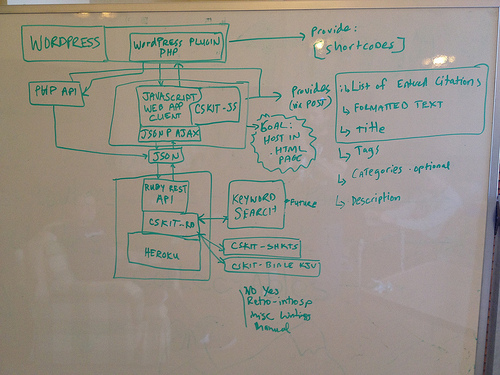 WORDPRESS
WORDPRESS PLUGIN
PHP
Provide:
[shortcodes]
PHP API
JAVASCRIPT
WEB APP
CLIENT
CSKIT-JS
JSONP AJAX
Provides
(via POST)
List of Entered Citations
FORMATTED TEXT
Title
Tags
Categories - optional
Description
GOAL:
HOST IN
.HTML
PAGE
JSON
RUBY REST
API
CSKIT-RB
HEROKU
KEYWORD
SEARCH
Future
CSKIT-SHKTS
CSKIT-BIBLE KJV
No Yes
Retro-introsp
misc
Manual